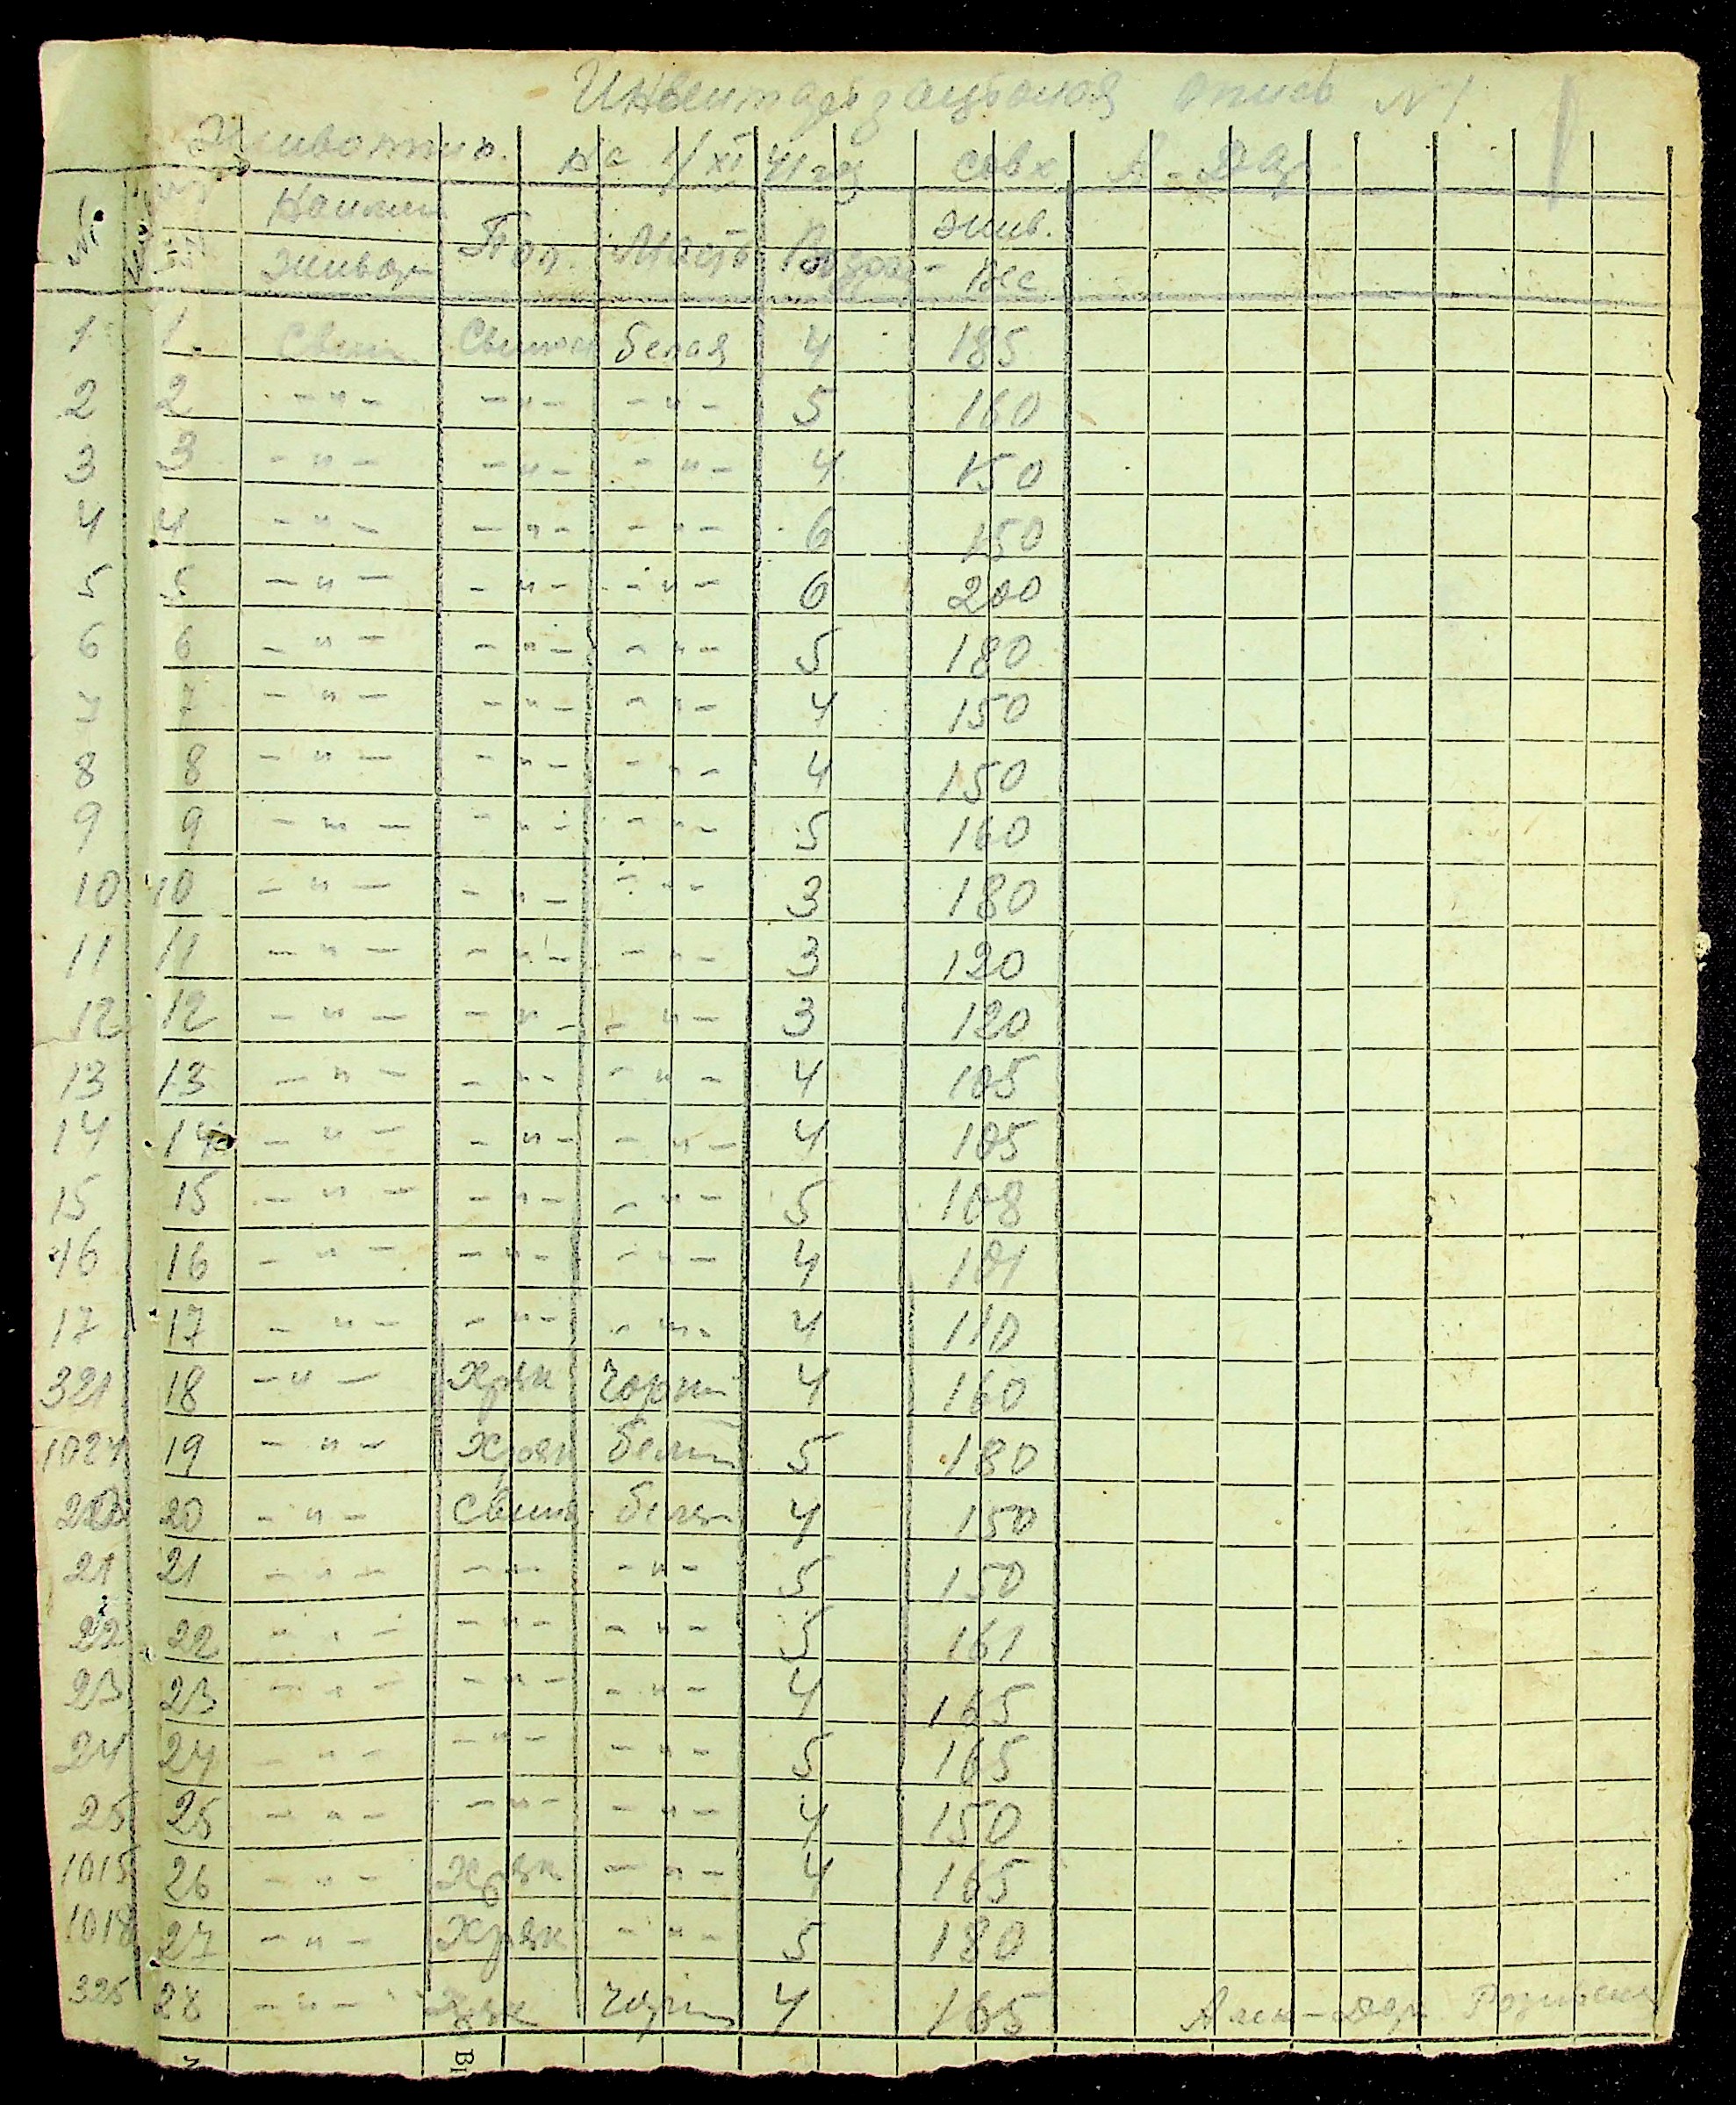 Инвентаризационая опись №1
Животных на 1/XI 41 год совх. А-Дар
№ Наимен животн Пол. Масть Возраст жив. вес
1 1. Свин Свинка белая 4 185
2 2 -"- -"- -"- 5 160
3 3 -"- -"- -"- 4 150
4 4 -"- -"- -"- 6 150
5 5 -"- -"- -"- 6 200
6 6 -"- -"- -"- 5 180
7 7 -"- -"- -"- 4 150
8 8 -"- -"- -"- 4 150
9 9 -"- -"- -"- 5 160
10 10 -"- -"- -"- 3 180
11 11 -"- -"- -"- 3 120
12 12 -"- -"- -"- 3 120
13 13 -"- -"- -"- 4 105
14 14 -"- -"- -"- 4 105
15 15 -"- -"- -"- 5 108
16 16 -"- -"- -"- 4 101
17 17 -"- -"- -"- 4 110
321 18 -"- Хряк Чорный 4 160
1024 19 -"- Хряк белый 5 180
20 -"- Свинк белая 4 150
21 21 -"- -"- -"- 5 150
22 22 -"- -"- -"- 5 161
23 23 -"- -"- -"- 4 165
24 24 -"- -"- -"- 5 165
25 25 -"- -"- -"- 4 150
1015 26 -"- Хряк -"- 4 165
1018 27 -"- Хряк -"- 5 180
325 28 -"- Хряк 4 165
Алек-Дар
ВІ